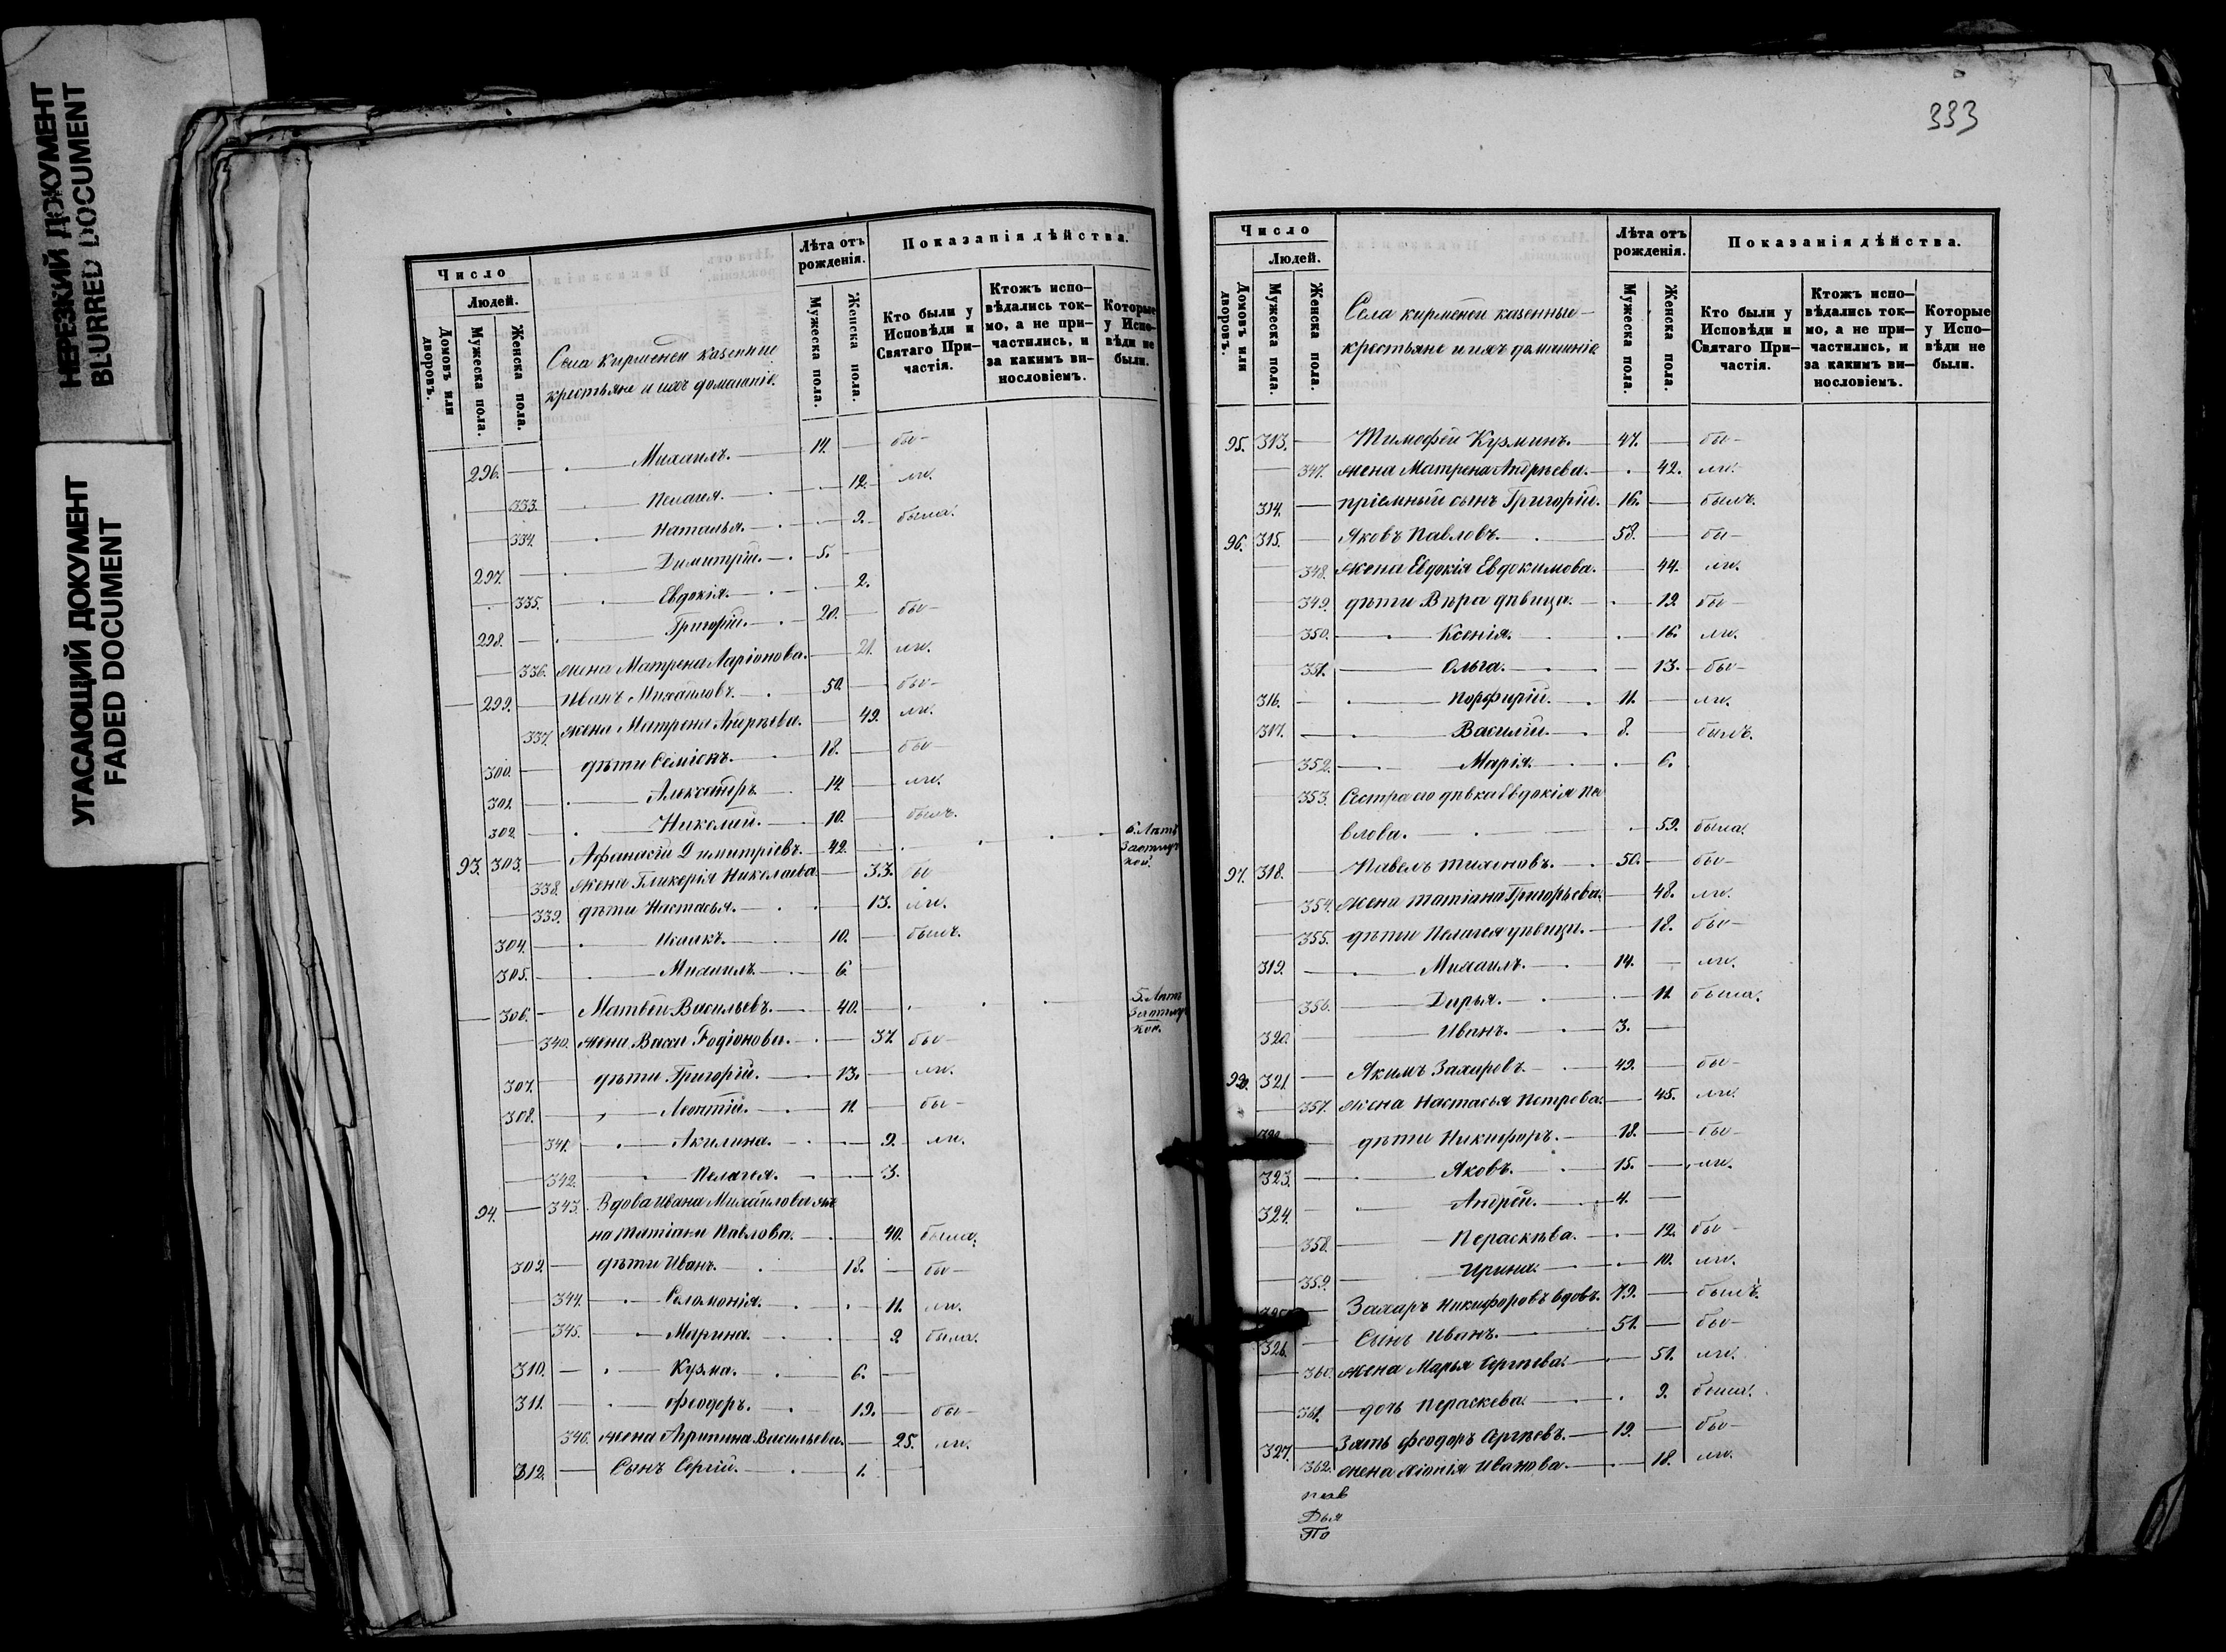 НЕРЕЗКИЙ ДОКУМЕНТ
BLURRED DOCUMENT
УГАСАЮЩИЙ ДОКУМЕНТ
FADED DOCUMENT
Число
Людей.
Домовъ или дворовъ.
Мужеска пола.
Женска пола.
Села Кирменей казенные
крестьяне и ихъ домашніе.
Лѣта отъ рожденія.
Мужеска пола.
Женска пола.
Показанія дѣйства.
Кто были у Исповѣди и Святаго При-частія.
Ктожъ испо-вѣдались ток-мо, а не при-частились, и за какимъ ви-нословіемъ.
Которые у Испо-вѣди не были.
296. — Михаилъ. 14. — бы-
333. Пелагея. 12. ли.
334. Наталья. 9. была.
297. — Димитрій. 5. —
335. Евдокія. 2.
298. — Григорій. 20. — бы-
336. жена Матрена Ларіонова. — 21. ли.
299. — Иванъ Михайловъ. 50. — бы-
337. жена Матрена Андрѣева. — 49. ли.
300. — дѣти Семіонъ. 18. — бы-
301. — Александръ. 14. — ли.
302. — Николай. 10. — былъ.
93. 303. — Афанасій Димитріевъ. 42. 6. Лѣтъ
338. жена Гликерія Николаева. — 33. бы
339. дѣти Настасья. 13. ли.
304. — Исаакъ. 10. — былъ.
305. — Михаилъ. 6. —
306. — Матвей Васильевъ. 40. — 5. Лѣтъ
340. жена Васса Родіонова. — 37. бы-
307. — дѣти Григорій. 13. — ли.
308. — Леонтій. 11. — бы-
341. Акилина. 9. ли.
342. Пелагея. 3.
94. — 343. Вдова Ивана Михайлова же
на Татіана Павлова. 40. была.
309. — дѣти Иванъ. 18. — бы-
344. Соломонія. 11. ли.
345. Марина. 9. была.
310. — Кузма. 6. —
311. — Феодоръ. 19. — бы-
346. жена Агрипина Васильева. — 25. ли.
312. — Сынъ Сергій. 1. —
333
Число
Людей.
Домовъ или дворовъ.
Мужеска пола.
Женска пола.
Села Кирменей казенные
крестьяне и ихъ домашніе.
Лѣта отъ рожденія.
Мужеска пола.
Женска пола.
Показанія дѣйства.
Кто были у Исповѣди и Святаго При-частія.
Ктожъ испо-вѣдались ток-мо, а не при-частились, и за какимъ ви-нословіемъ.
Которые у Испо-вѣди не были.
95. 313. — Тимофей Кузминъ. 47. — бы-
347. жена Матрена Андрѣева. 42. ли.
314. — пріемный сынъ Григорій. 16. — былъ.
96. 315. — Яковъ Павловъ. 58. — бы-
348. жена Евдокія Евдокимова. — 44. ли.
349. дѣти Вѣра дѣвица. 19. бы-
350. Ксенія. 16. ли.
351. Ольга. 13. бы-
316. — Порфирій. 11. — ли.
317. — Василій. 8. — былъ.
352. Марія. 6.
353. Сестра его дѣвка Евдокія Па
влова. 59. была.
97. 318. — Павелъ Тихоновъ. 50. — бы-
354. жена Татіана Григорьева. — 48. ли.
355. дѣти Пелагея дѣвица. — 18. бы-
319. — Михаилъ. 14. — ли.
356. Дарья. 11. была.
320. Иванъ. 3. —
98. 321. — Якимъ Захаровъ. 49. — бы-
357. жена Настасья Петрова. — 45. ли.
дѣти Никифоръ. 18. — бы-
323. Яковъ. 15. — ли.
324. Андрей. 4. —
358. Пераскѣва. 12. бы-
359. Ирина. 10. ли.
Захаръ Никифоровъ вдовъ. 79. — былъ.
326. — Сынъ Иванъ. 51. — бы-
360. жена Марья Сергѣева. — 51. ли.
361. дочь Пераскева. 9. была.
327. — Зять Феодоръ Сергѣевъ. 19. — бы-
362. жена Хіонія Иванова. 18. ли.
Дья
По